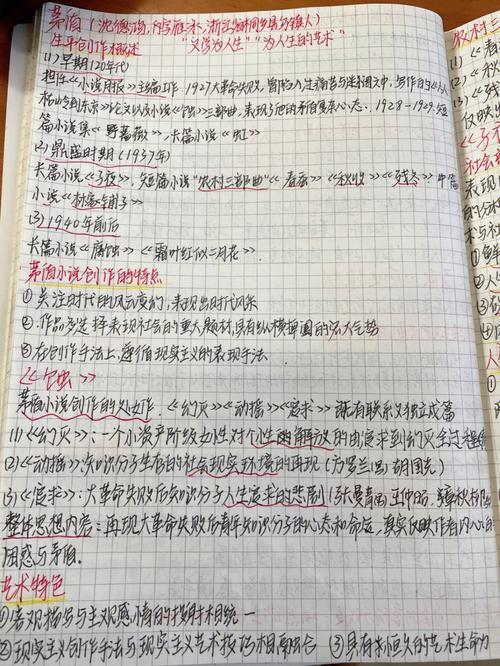 茅盾(沈德鸿,字雁冰,浙江桐乡县乌镇人)
生平创作概述 "文学为人生" "为人生的艺术"
(1)早期(20年代)
担任《小说月报》主编工作.1927大革命失败,
松岭到东京》论文以及小说《蚀》三部曲,表现了他的矛盾复杂心态.1928-1929.短
篇小说集《野蔷薇》.长篇小说《虹》
(2)鼎盛时期(1937年)
长篇小说《子夜》.短篇小说"农村三部曲"《春蚕》《秋收》《残冬》.中篇
小说《林家铺子》
(3)1940年前后
长篇小说《腐蚀》《霜叶红似二月花》.
茅盾小说创作的特点
①关注时代的风云变幻,表现出时代风采
②作品多选择表现社会的重大题材,具有纵横捭阖的宏大气势
③在创作手法上,遵循现实主义的表现手法.
《蚀》
茅盾小说创作的处女作.《幻灭》《动摇》《追求》既有联系又独立成篇
(1)《幻灭》:一个小资产阶级女性对个性的解放的由追求到幻灭全过程
(2)《动摇》:知识分子生存的社会现实环境的再现(方罗兰 胡国光)
(3)《追求》:大革命失败后知识分子人生追求的悲剧(张曼青 王仲昭 章秋柳
整体思想内容:再现大革命失败后青年知识分子的心态和命运,真实反映作者内心的
困惑与矛盾.
艺术特色
①客观描写与主观感情的投射相统一
②现实主义创作手法与现实主义艺术技巧相融合 ③具有永恒久的艺术生命力
农村三
(1)《春
(2)《秋
(3)《残
反映
社会